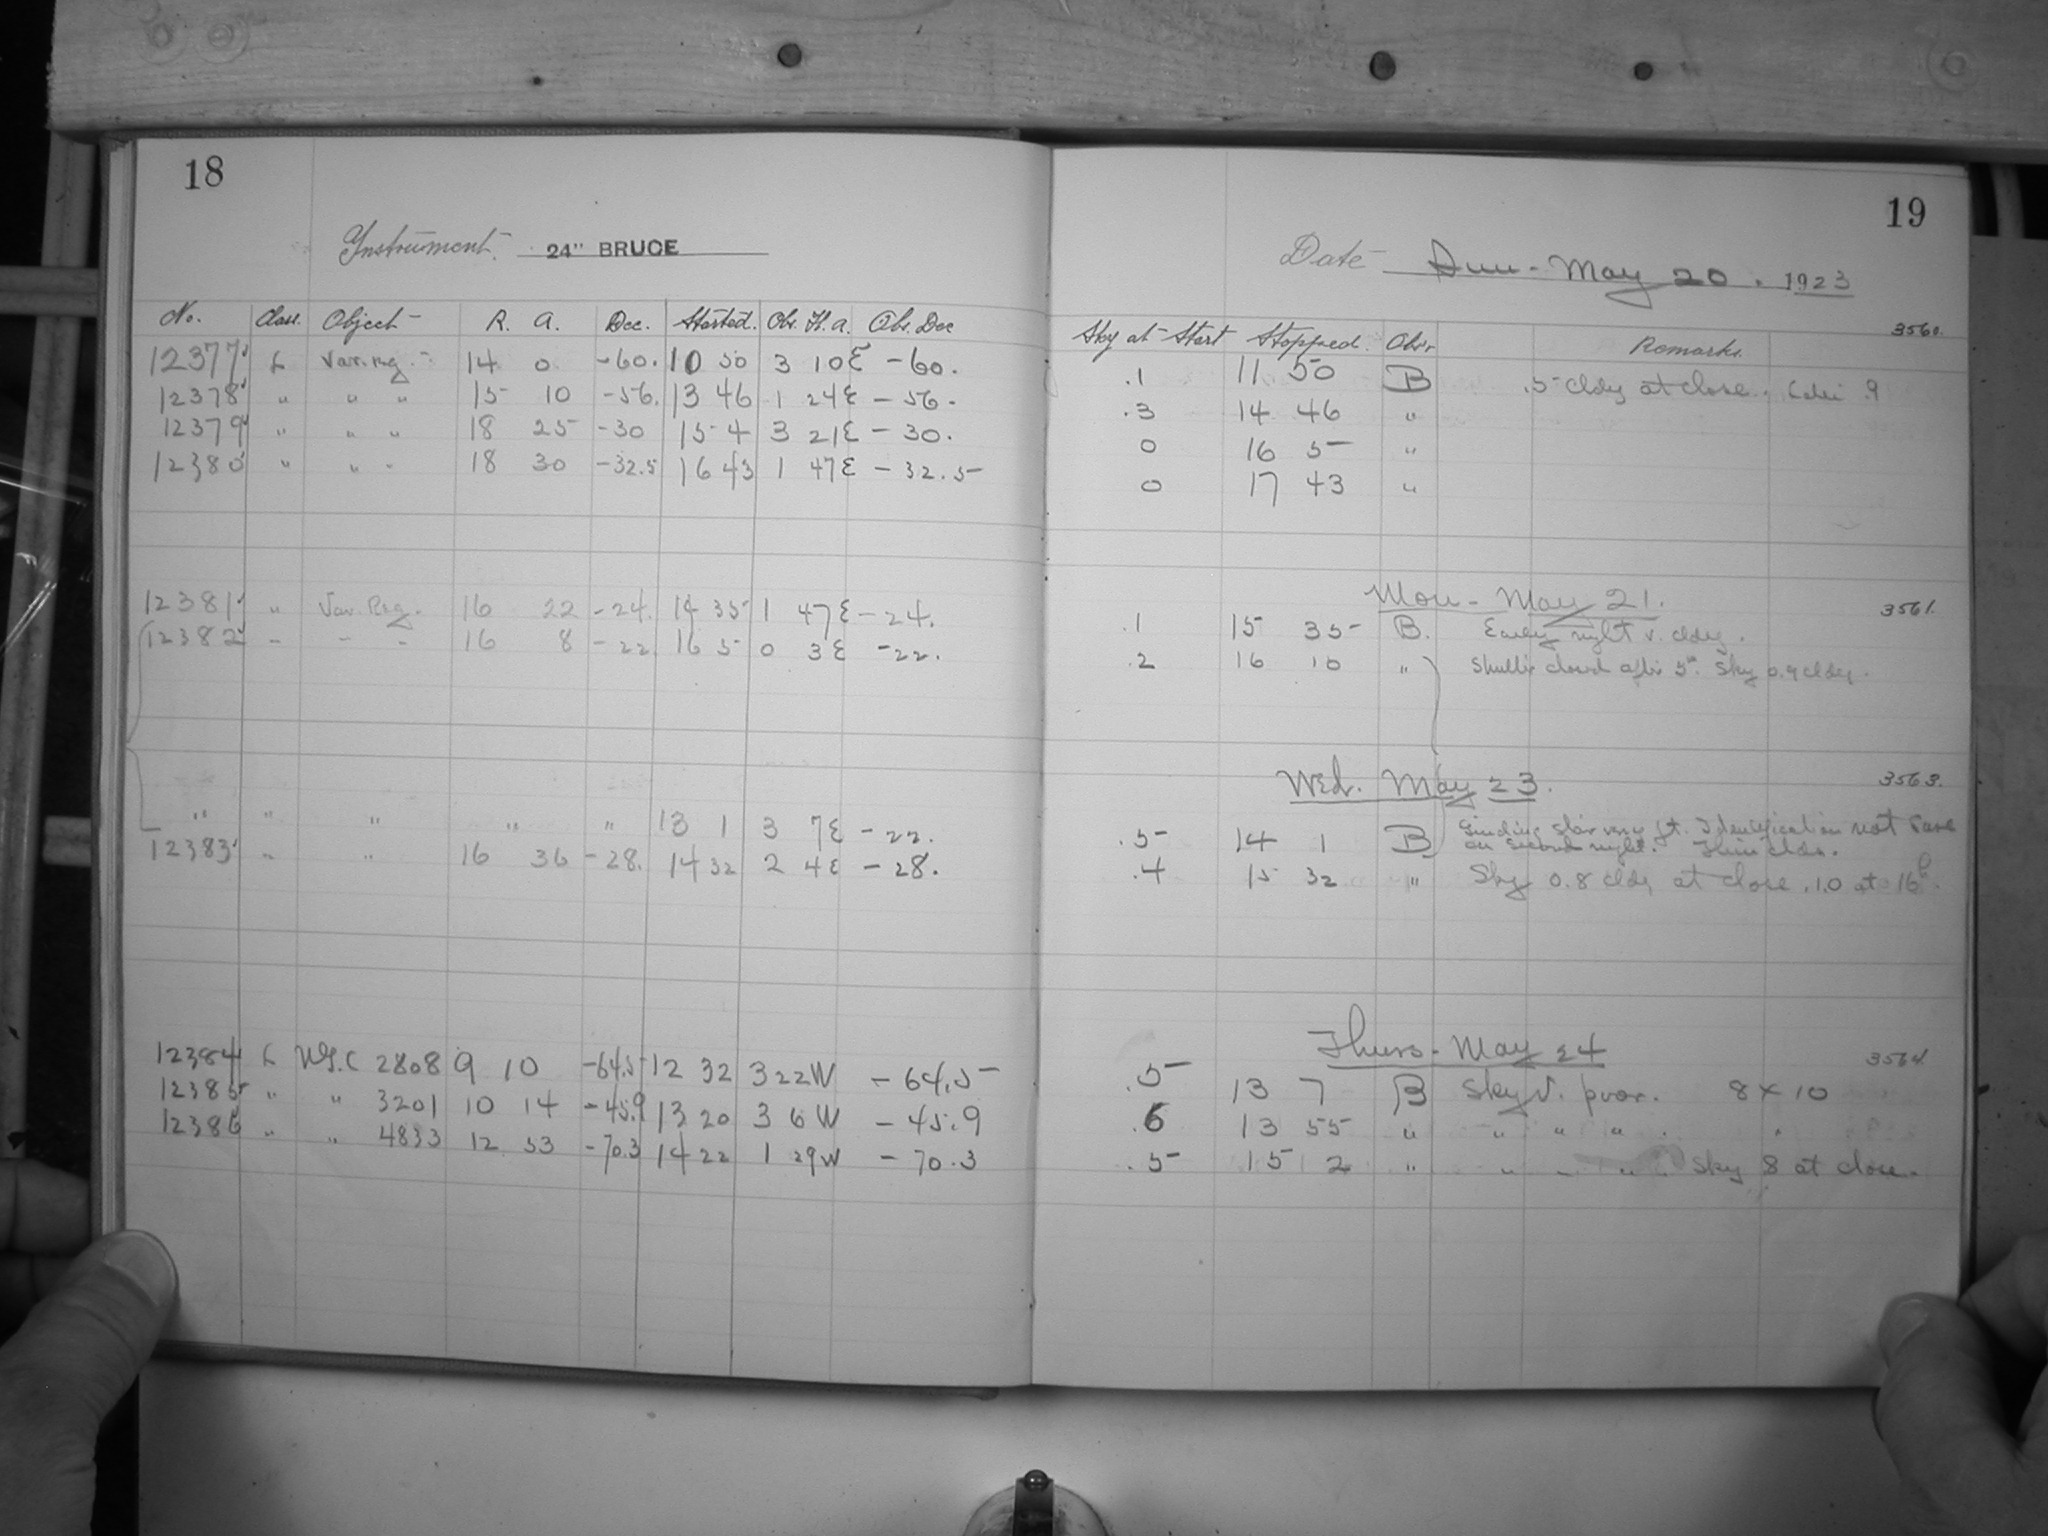 18
Instrument. 24" BRUCE
No. Class. Object R. A. Dec. Started. Obs. H.a. Obs. Dec
12377 L Var. reg. 14 0 -60. 10 50 3 10E -60.
12378 " " " 15 10 -56. 13 46 1 24E -56.
12379 " " " 18 25 -30 15 4 3 21E -30.
12380 " " " 18 30 -32.5 16 43 1 47E -32.5
12381 " Var. Reg. 16 22 -24. 14 35 1 47E -24.
12382 " " " 16 8 -22 16 5 0 3E -22.
" " " " " 13 1 3 7E -22.
12383 " " 16 36 -28. 14 32 2 4E -28.
12384 L N.G.C 2808 9 10 -64.5 12 32 3 22W -64.5
12385 " " 3201 10 14 -45.9 13 20 3 6W -45.9
12386 " " 4833 12 53 -70.3 14 22 1 29W -70.3
19
Date Sun- May 20. 1923
Sky at Start Stopped. Obs'r Remarks. 3560.
.1 11 50 B .5 cldy at close. .9
.3 14 46 "
0 16 5 "
0 17 43 "
Mon- May 21. 3561.
.1 15 35 B. Early night v. cldy.
.2 16 10 " cloud after 5m. Sky 0.9 cldy.
Wed. May 23. 3563.
.5 14 1 B Guiding star very ft. Identification not sure
on second night. Thin clds.
.4 15 32 " Sky 0.8 cldy at close. 1.0 at 16h.
Thurs- May 24 3564.
.5 13 7 B Sky v. poor. 8 x 10
.6 13 55 " " " " . "
.5 15 2 " " " " Sky 8 at close.